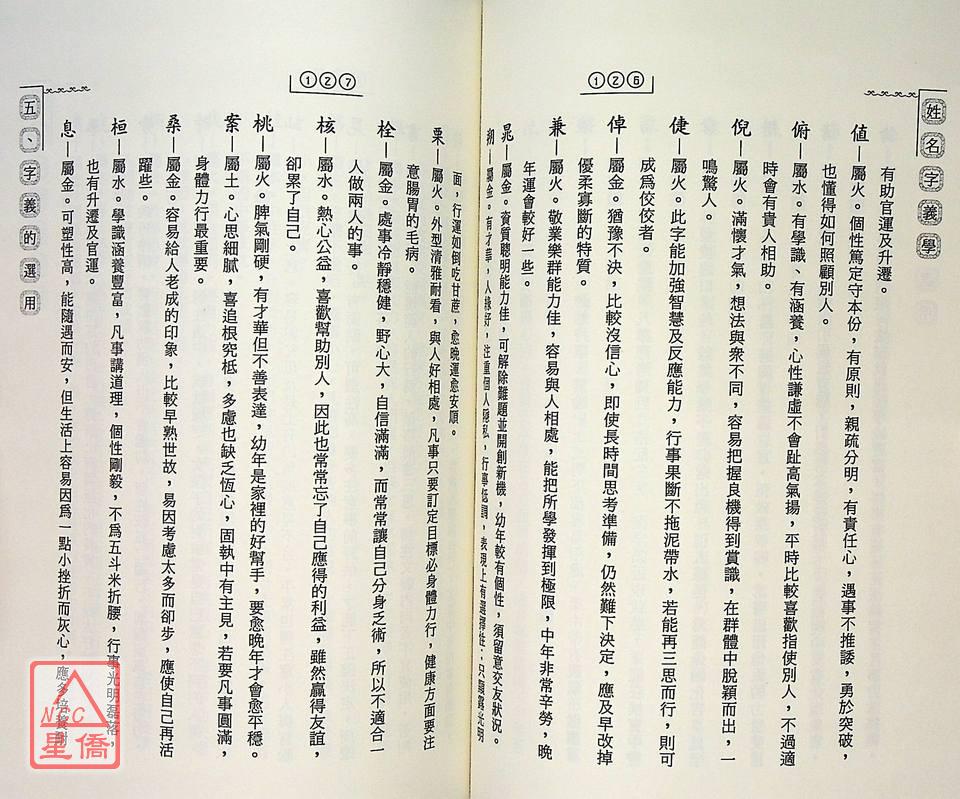 姓名字義學
126
有助官運及升遷。
值—屬火。個性篤定守本份，有原則，親疏分明，有責任心，遇事不推諉，勇於突破，
也懂得如何照顧別人。
俯—屬水。有學識、有涵養，心性謙虛不會趾高氣揚，平時比較喜歡指使別人，不過適
時會有貴人相助。
倪—屬火。滿懷才氣，想法與眾不同，容易把握良機得到賞識，在群體中脫穎而出，一
鳴驚人。
倢—屬火。此字能加強智慧及反應能力，行事果斷不拖泥帶水，若能再三思而行，則可
成為佼佼者。
倬—屬金。猶豫不決，比較沒信心，即使長時間思考準備，仍然難下決定，應及早改掉
優柔寡斷的特質。
兼—屬火。敬業樂群能力佳，容易與人相處，能把所學發揮到極限，中年非常辛勞，晚
年運會較好一些。
晁—屬金。資質聰明能力佳，可解除難題並開創新機，幼年較有個性，須留意交友狀況。
—屬金。有才華，人緣好，注重個人隱私，行事低調，表現上有選擇性；只顯露光明
127
五、字義的選用
面，行運如倒吃甘蔗，愈晚運愈安順。
栗—屬火。外型清雅耐看，與人好相處，凡事只要訂定目標必身體力行，健康方面要注
意腸胃的毛病。
栓—屬金。處事冷靜穩健，野心大，自信滿滿，而常常讓自己分身乏術，所以不適合一
人做兩人的事。
核—屬水。熱心公益，喜歡幫助別人，因此也常常忘了自己應得的利益，雖然贏得友誼，
卻累了自己。
桃—屬火。脾氣剛硬，有才華但不善表達，幼年是家裡的好幫手，要愈晚年才會愈平穩。
案—屬土。心思細膩，喜追根究柢，多慮也缺乏恆心，固執中有主見，若要凡事圓滿，
身體力行最重要。
桑—屬金。容易給人老成的印象，比較早熟世故，易因考慮太多而卻步，應使自己再活
躍些。
桓—屬水。學識涵養豐富，凡事講道理，個性剛毅，不為五斗米折腰，行事光明磊落，
也有升遷及官運。
息—屬金。可塑性高，能隨遇而安，但生活上容易因為一點小挫折而灰心，應多培養耐
NPC
星僑